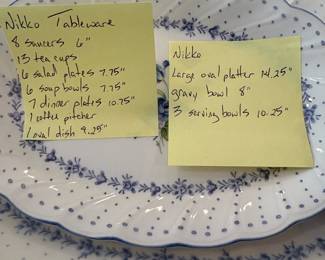 Nikko Tableware
8 saucers 6"
13 tea cups
6 salad plates 7.75"
6 soup bowls 7.75"
7 dinner plates 10.75"
1 coffee pitcher
1 oval dish 9.25"
Nikko
Large oval platter 14.25"
gravy bowl 8"
3 serving bowls 10.25"